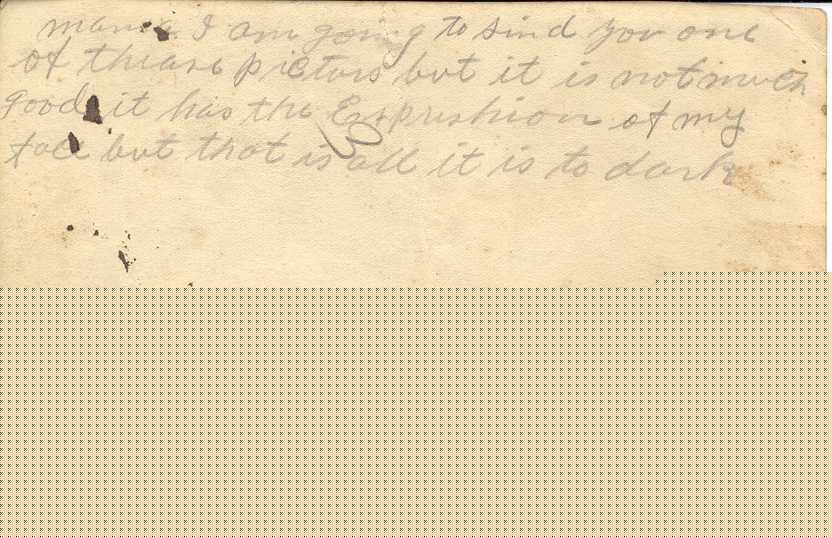 mama I am going to sind you one
of thease picturs but it is not much
good it has the Expreshion of my
face but that is all it is to dark